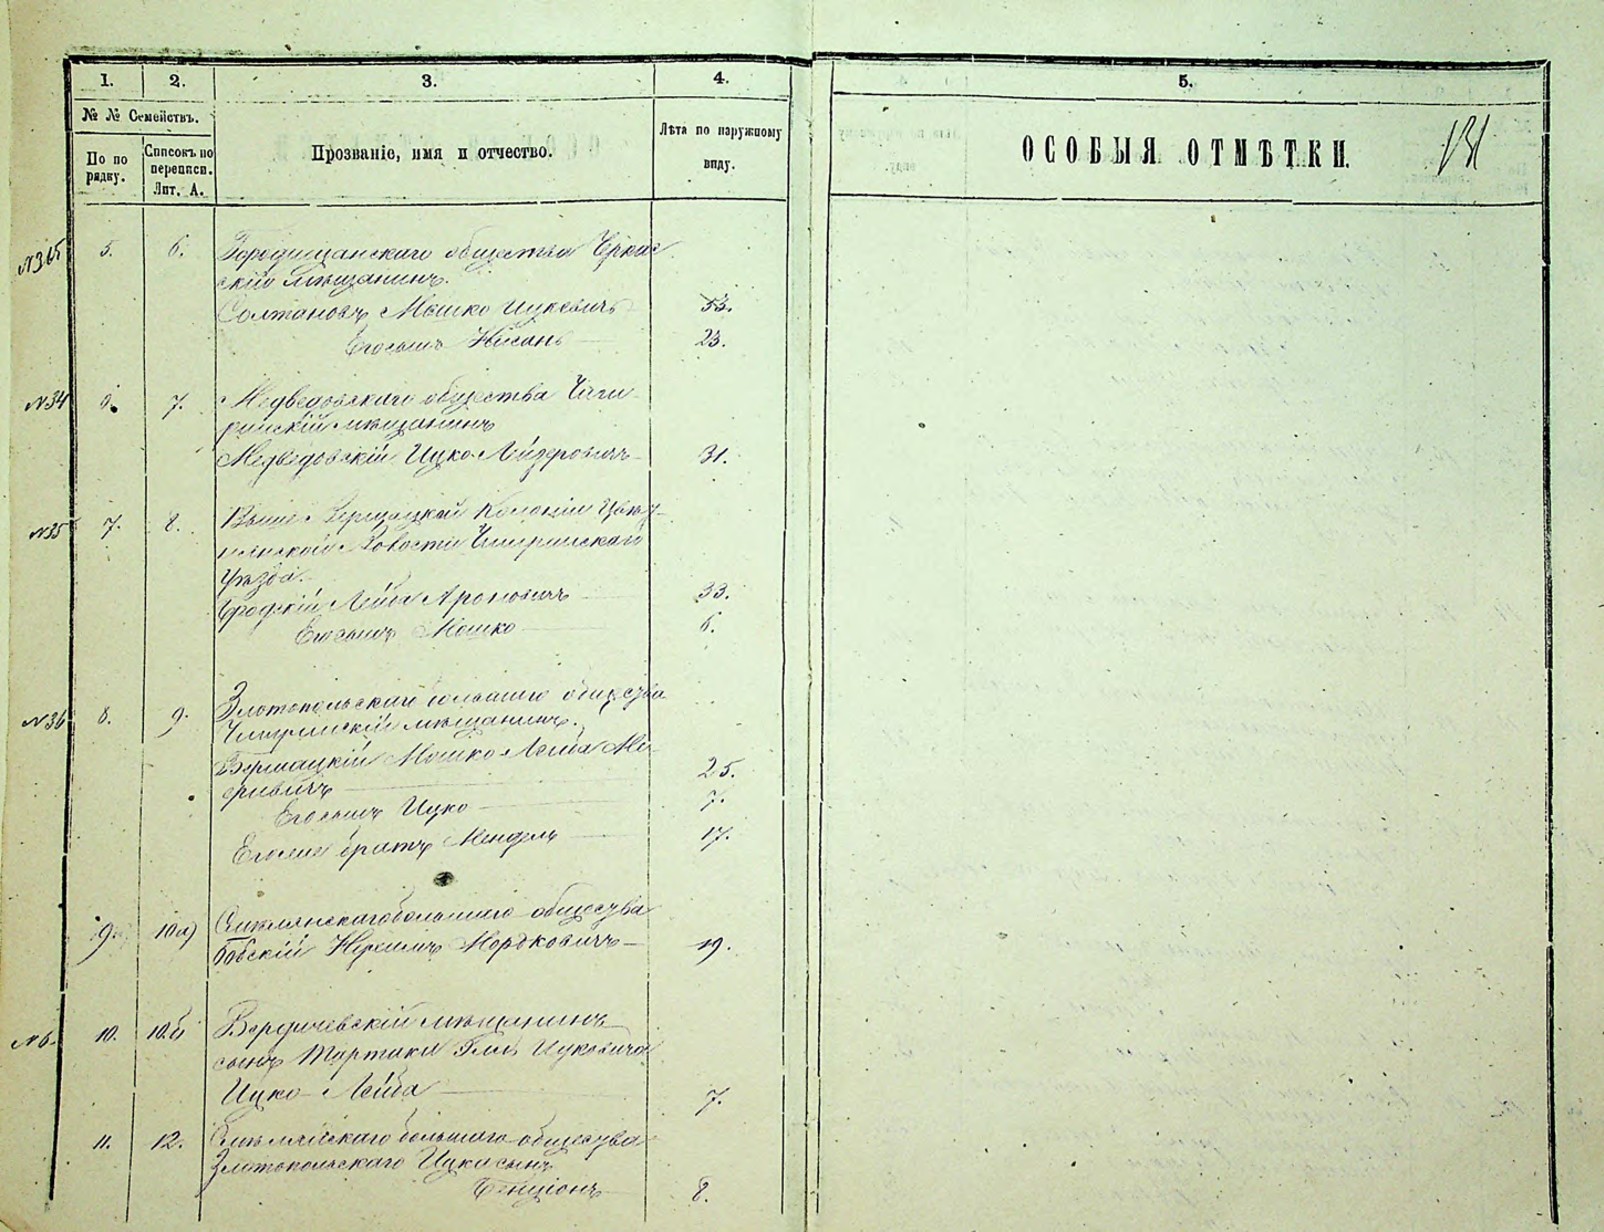 1. 2. 3. 4. 5.
№ № Семействъ.
По по рядку.
Списокъ по переписи. Лит. А.
Прозваніе, имя и отчество.
Лѣта по наружному виду.
ОСОБЫЯ ОТМѢТКИ.
131
5. 6. Городищанскаго общества Черкас
скій мѣщанинъ.
Солтановъ Мошко Ицковичъ 53.
Его сынъ Нисанъ 23.
№34 6. 7. Медведовскаго общества Чиги
ринскій мѣщанинъ
Медведовскій Ицко Лейзеровичъ 31.
№35 7. 8. Колоніи
волости Чигиринскаго
уѣзда.
Лейба Ароновичъ 33.
Его сынъ Мошко 6.
№36 8. 9. Златопольскаго большаго общества
Чигиринскій мѣщанинъ.
Мошко Лейба Ме
еровичъ 25.
Его сынъ Ицко 7.
Его же братъ Мендель 17.
9. 10а) большаго общества
Мордковичъ 19.
№6. 10. 10б Бердичевскій мѣщанинъ
сынъ Ицковича
Ицко Лейба 7.
11. 12. большаго общества
Златопольскаго Ицка сынъ
Бенціонъ 8.